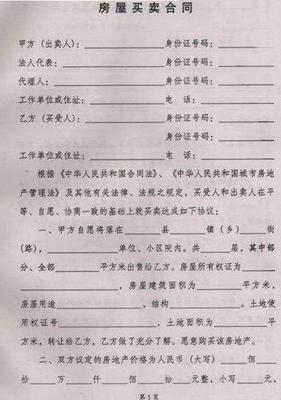 房屋买卖合同
甲方（出卖人）：________身份证号码：________
法人代表：________身份证号码：________
代理人：________身份证号码：________
工作单位或住址：________电　话：________
乙方（买受人）：________身份证号码：________
________身份证号码：________
工作单位或住址：________电　话：________
根据《中华人民共和国合同法》、《中华人民共和国城市房地
产管理法》及其他有关法律、法规之规定，买受人和出卖人在平
等、自愿、协商一致的基础上就买卖达成如下协议：
一、甲方自愿将落在____县____镇（乡）____街
（路），________单位、小区院内。共____层，其中部
分、全部________平方米出售给乙方。房屋所有权证为
________，房屋建筑面积为________平方米，
房屋用途________，结构________。土地使
用权证号________，土地面积为________平方
米，转让给乙方，乙方做了充分了解。愿意购买该房地产。
二、双方议定的房地产价格为人民币（大写）____佰
____拾____万____仟____佰____拾____元整，小写____元，
第1页